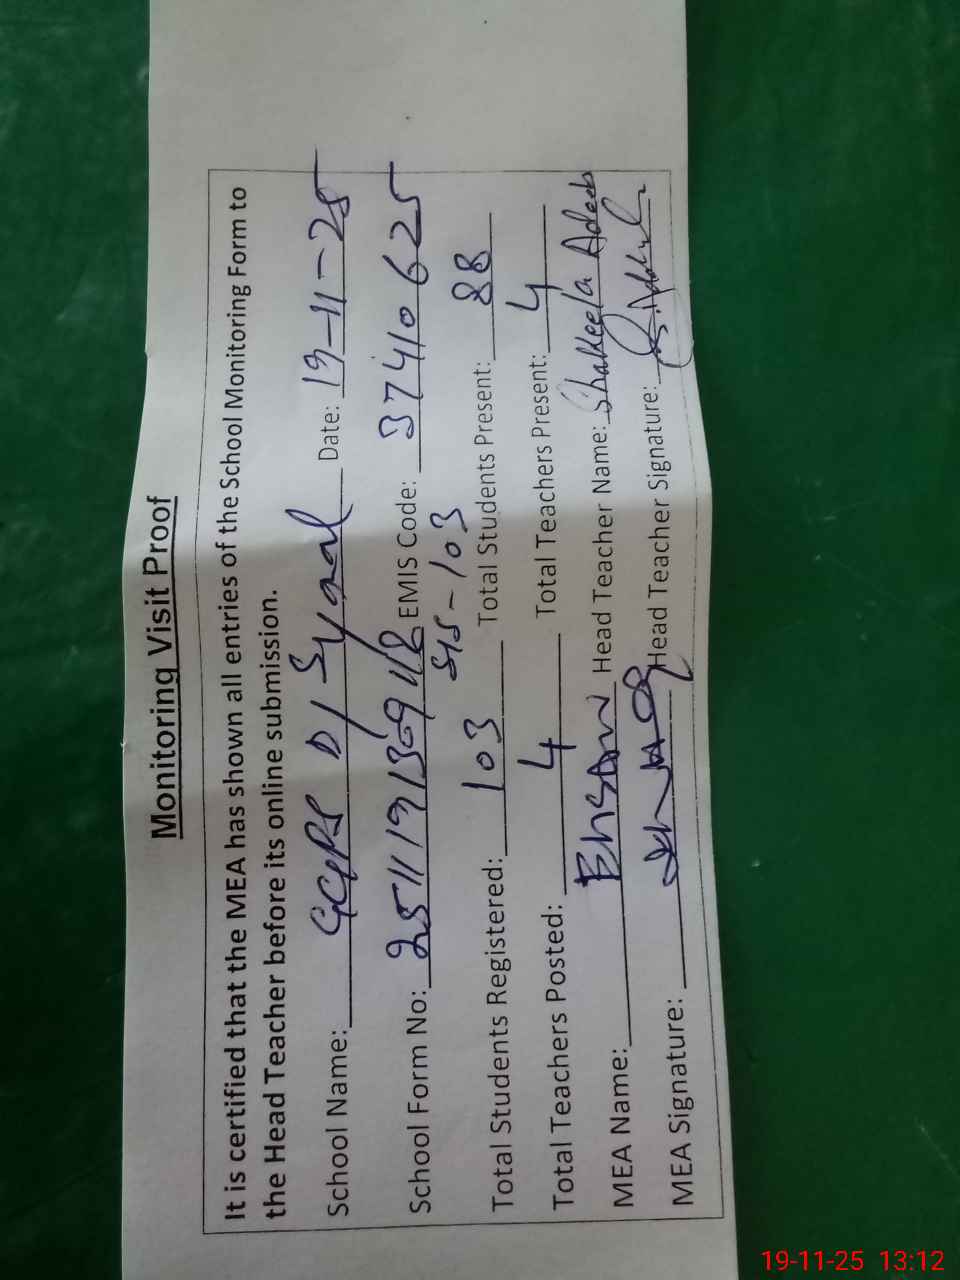 Monitoring Visit Proof
It is certified that the MEA has shown all entries of the School Monitoring Form to
the Head Teacher before its online submission.
School Name: GGPS D/Syaal Date: 19-11-25
School Form No: EMIS Code: 37410625
SIS-103
Total Students Registered: 103 Total Students Present: 88
Total Teachers Posted: 4 Total Teachers Present: 4
MEA Name: Head Teacher Name: Shakeela Adeeb
MEA Signature: Head Teacher Signature:
19-11-25 13:12